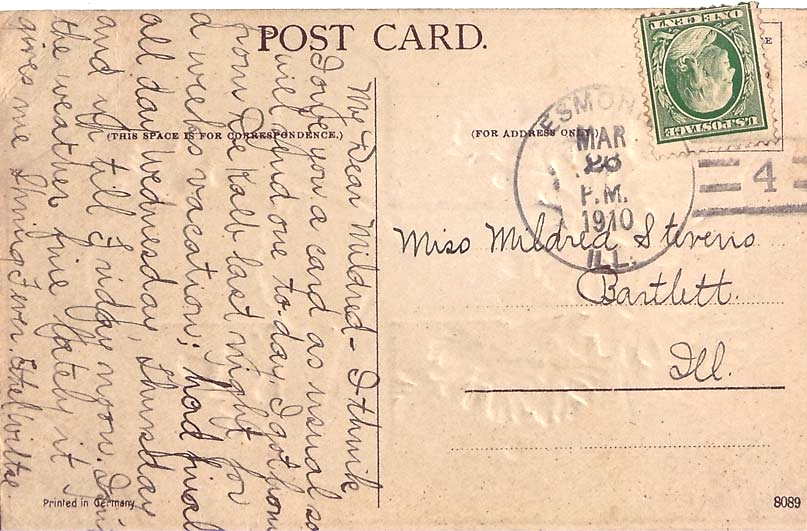 POST CARD.
(THIS SPACE IS FOR CORRESPONDENCE.)
(FOR ADDRESS ONLY.)
U.S. POSTAGE
ONE CENT
ESMOND
MAR
26
P.M.
1910
ILL.
4
Miss Mildred Stevens
Bartlett.
Ill.
My Dear Mildred - I think
I owe you a card as usual so
will send one to-day. I got home
from De Kalb last night for
a weeks vacation; had final
all day Wednesday, Thursday
and up till Friday noon.
the weather fine lately it
gives me Spring Fever. Ethel Wiltse
Printed in Germany
8089